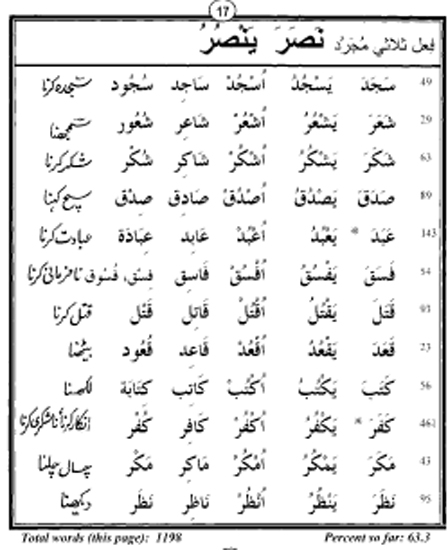 17
فعل ثلاثي مُجَرَّد نَصَرَ يَنْصُرُ
49 سَجَدَ يَسْجُدُ اُسْجُدْ سَاجِد سُجُود سجدہ کرنا
29 شَعَرَ يَشْعُرُ اُشْعُرْ شَاعِر شُعُور سمجھنا
63 شَكَرَ يَشْكُرُ اُشْكُرْ شَاكِر شُكْر شکر کرنا
89 صَدَقَ يَصْدُقُ اُصْدُقْ صَادِق صِدْق سچ کہنا
143 عَبَدَ * يَعْبُدُ اُعْبُدْ عَابِد عِبَادَة عبادت کرنا
54 فَسَقَ يَفْسُقُ اُفْسُقْ فَاسِق فِسْق، فُسُوق نافرمانی کرنا
93 قَتَلَ يَقْتُلُ اُقْتُلْ قَاتِل قَتْل قتل کرنا
23 قَعَدَ يَقْعُدُ اُقْعُدْ قَاعِد قُعُود بیٹھنا
56 كَتَبَ يَكْتُبُ اُكْتُبْ كَاتِب كِتَابَة لکھنا
461 كَفَرَ * يَكْفُرُ اُكْفُرْ كَافِر كُفْر انکار کرنا ناشکری کرنا
43 مَكَرَ يَمْكُرُ اُمْكُرْ مَاكِر مَكْر چال چلنا
95 نَظَرَ يَنْظُرُ اُنْظُرْ نَاظِر نَظَر دیکھنا
Total words (this page): 1198 Percent so far: 63.3